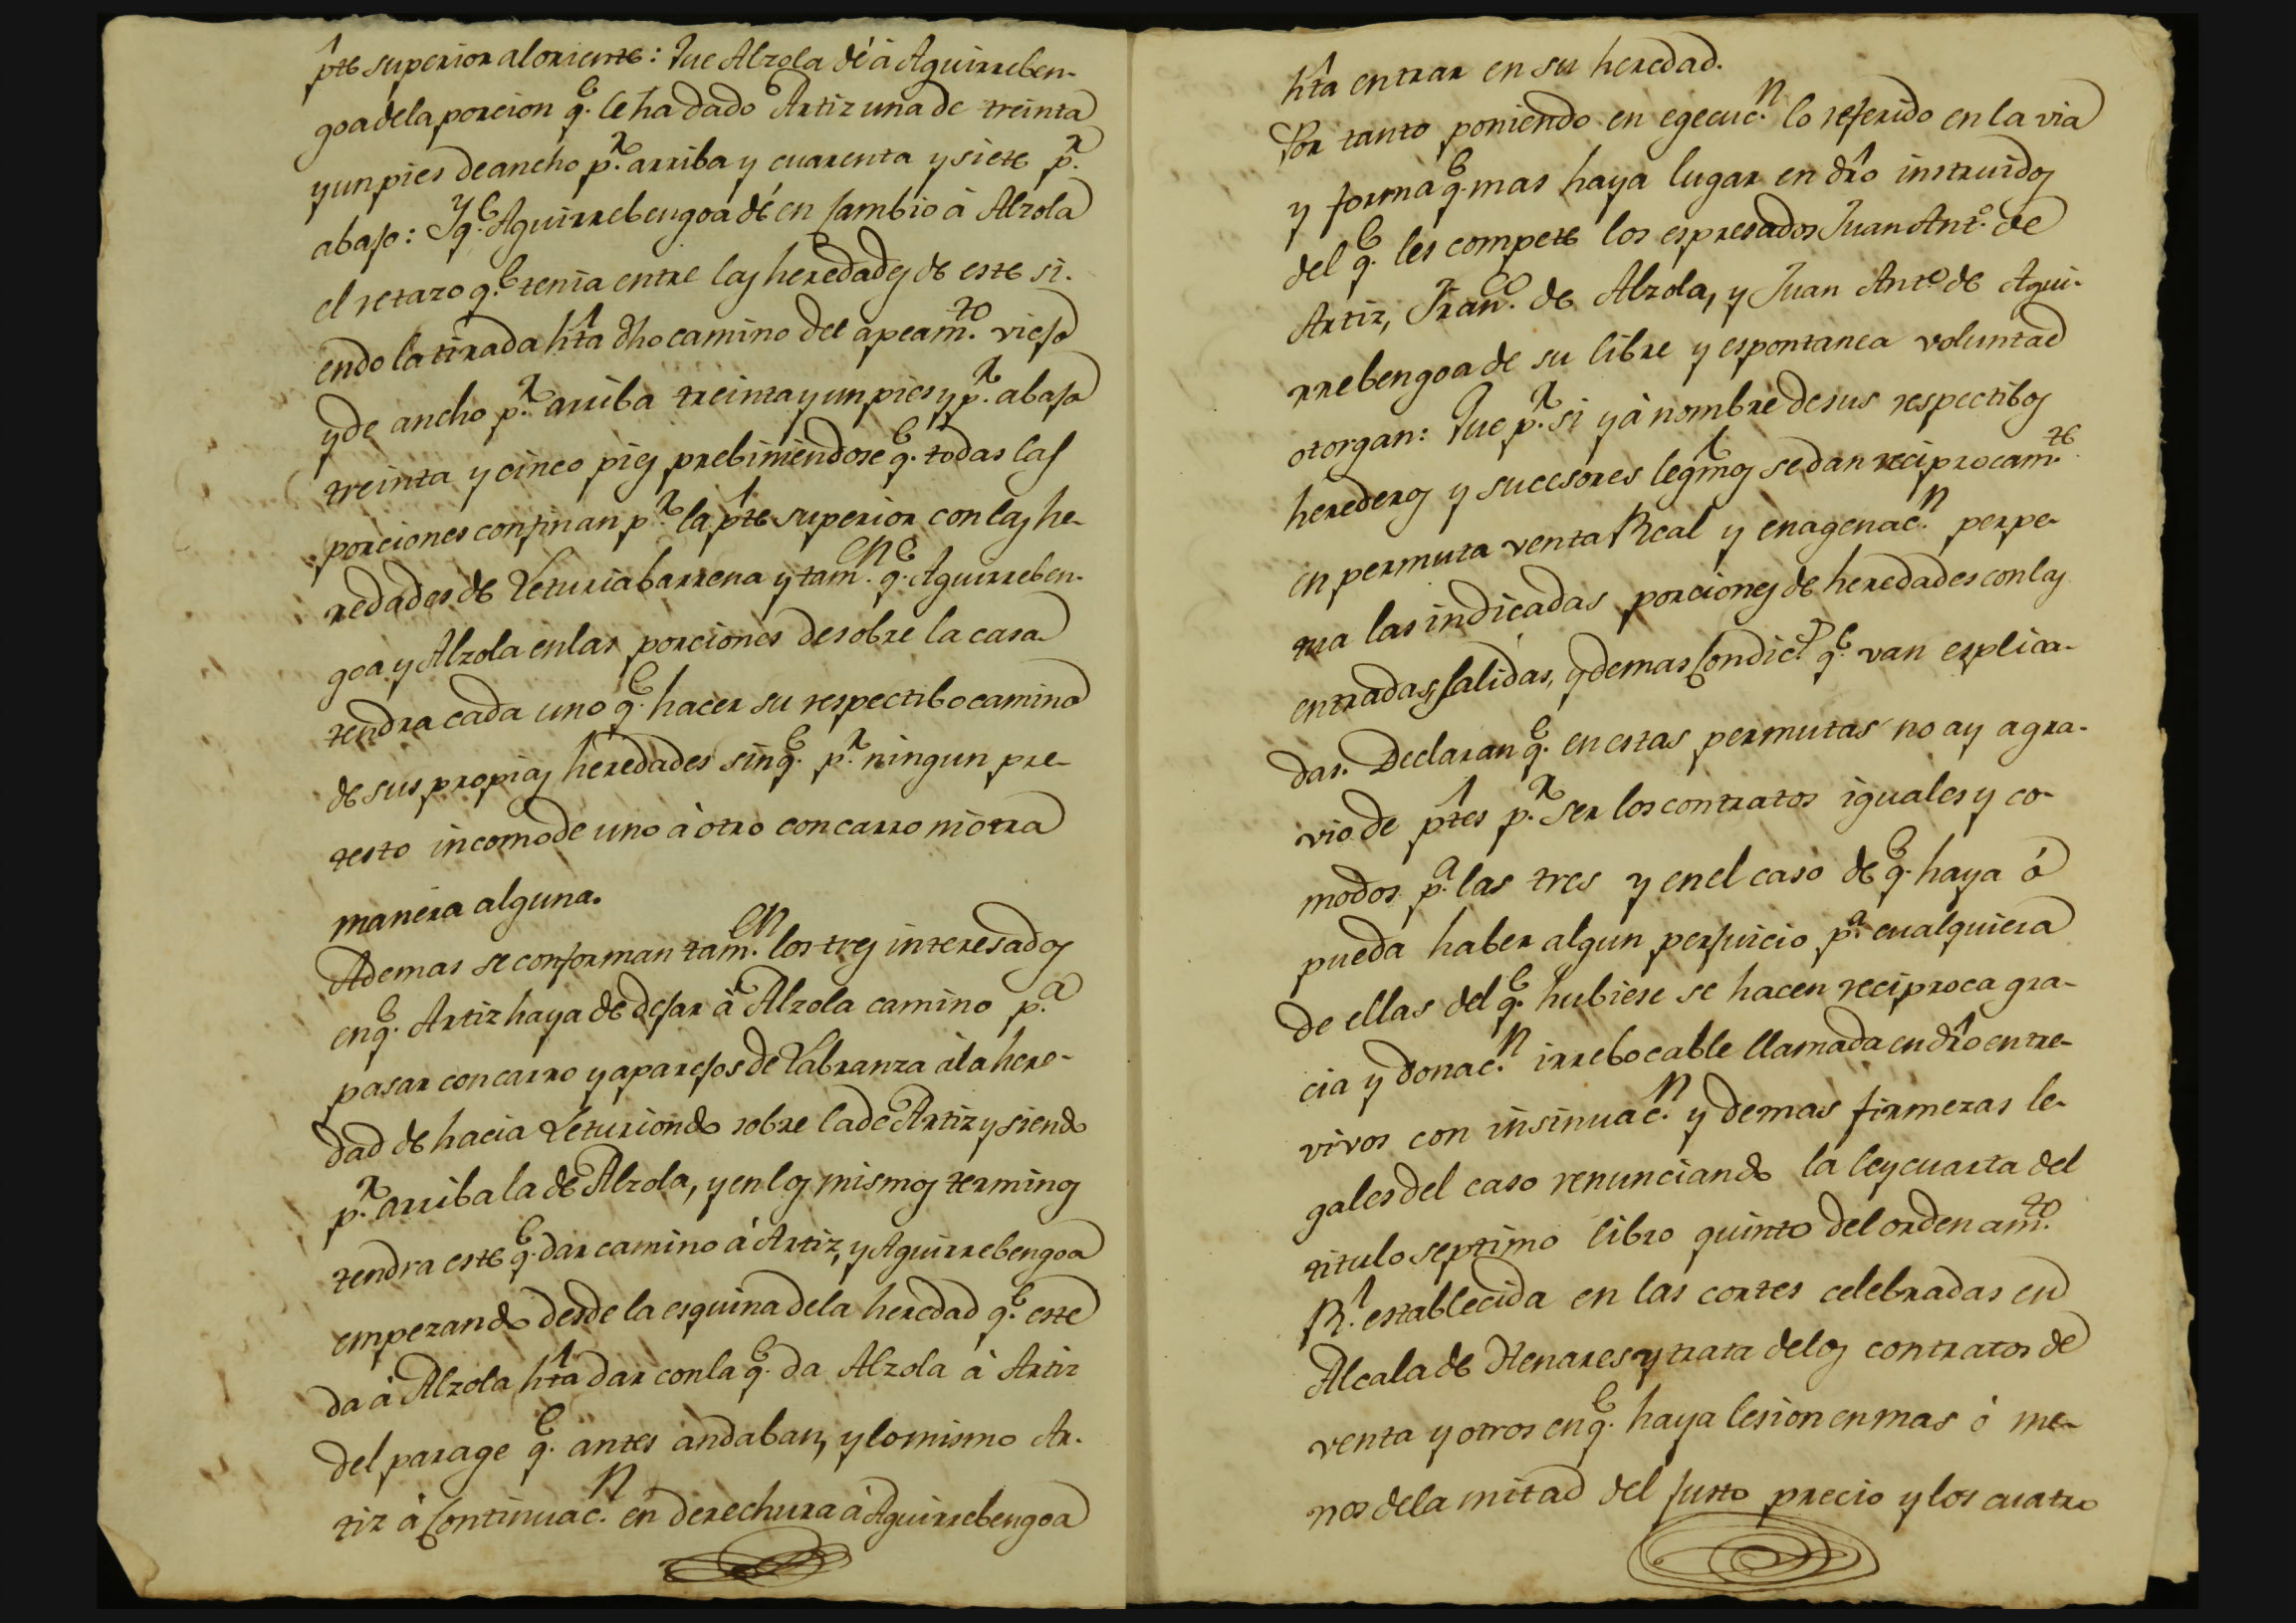 pte superior al oriente: Que Alzola dé à Aguirreben-
goa de la porcion q.e le ha dado Artiz una de treinta
y un pies de ancho p.r arriba y cuarenta y siete p.r
abajo: Y q.e Aguirrebengoa dé en Cambio à Alzola
el retazo q.e tenia entre las heredades de este si-
endo la tirada hta dho camino del apeam.to viejo
y de ancho p.r arriba treinta y un pies y p.r abajo
treinta y cinco pies prebiniendose q.e todas las
porciones confinan p.r la pte superior con las he-
redades de Leturiabarrena y tam.en q.e Aguirreben-
goa y Alzola en las porciones de sobre la casa
tendra cada uno q.e hacer su respectibo camino
de sus propias heredades sin q.e p.r ningun pre-
testo incomode uno à otro con carro ni otra
manera alguna.
Ademas se conforman tam.en los tres interesados
en q.e Artiz haya de dejar à Alzola camino p.a
pasar con carro y aparejos de Labranza à la here-
dad de hacia Leturiondo sobre la de Artiz y siendo
p.r arriba la de Alzola, y en los mismos terminos
tendra este q.e dar camino à Artiz, y Aguirrebengoa
empezando desde la esquina de la heredad q.e este
da à Alzola hta dar con la q.e da Alzola à Artiz
del parage q.e antes andaban, y lo mismo Ar-
tiz à Continuac.n en derechura à Aguirrebengoa
hta entrar en su heredad.
Por tanto poniendo en egecuc.n lo referido en la via
y forma q.e mas haya lugar en dro instruidos
del q.e les compete los espresados Juan Ant.o de
Artiz, Fran.co de Alzola, y Juan Ant.o de Agui-
rrebengoa de su libre y espontanea voluntad
otorgan: Que p.r si y à nombre de sus respectibos
herederos y succesores legmos se dan reciprocam.te
en permuta venta Real y enagenac.n perpe-
tua las indicadas porciones de heredades con las
entradas, salidas, y demas Condic.s q.e van esplica-
das. Declaran q.e en estas permutas no ay agra-
vio de ptes p.r ser los contratos iguales y co-
modos p.a las tres y en el caso de q.e haya ó
pueda haber algun perjuicio p.a cualquiera
de ellas del q.e hubiese se hacen reciproca gra-
cia y donac.n irrebocable llamada en dro entre-
vivos con insinuac.n y demas firmezas le-
gales del caso renunciando la ley cuarta del
titulo septimo libro quinto del ordenam.to
R.l establecida en las cortes celebradas en
Alcala de Henares y trata de los contratos de
venta y otros en q.e haya lesion en mas ó me-
nos de la mitad del justo precio y los cuatro